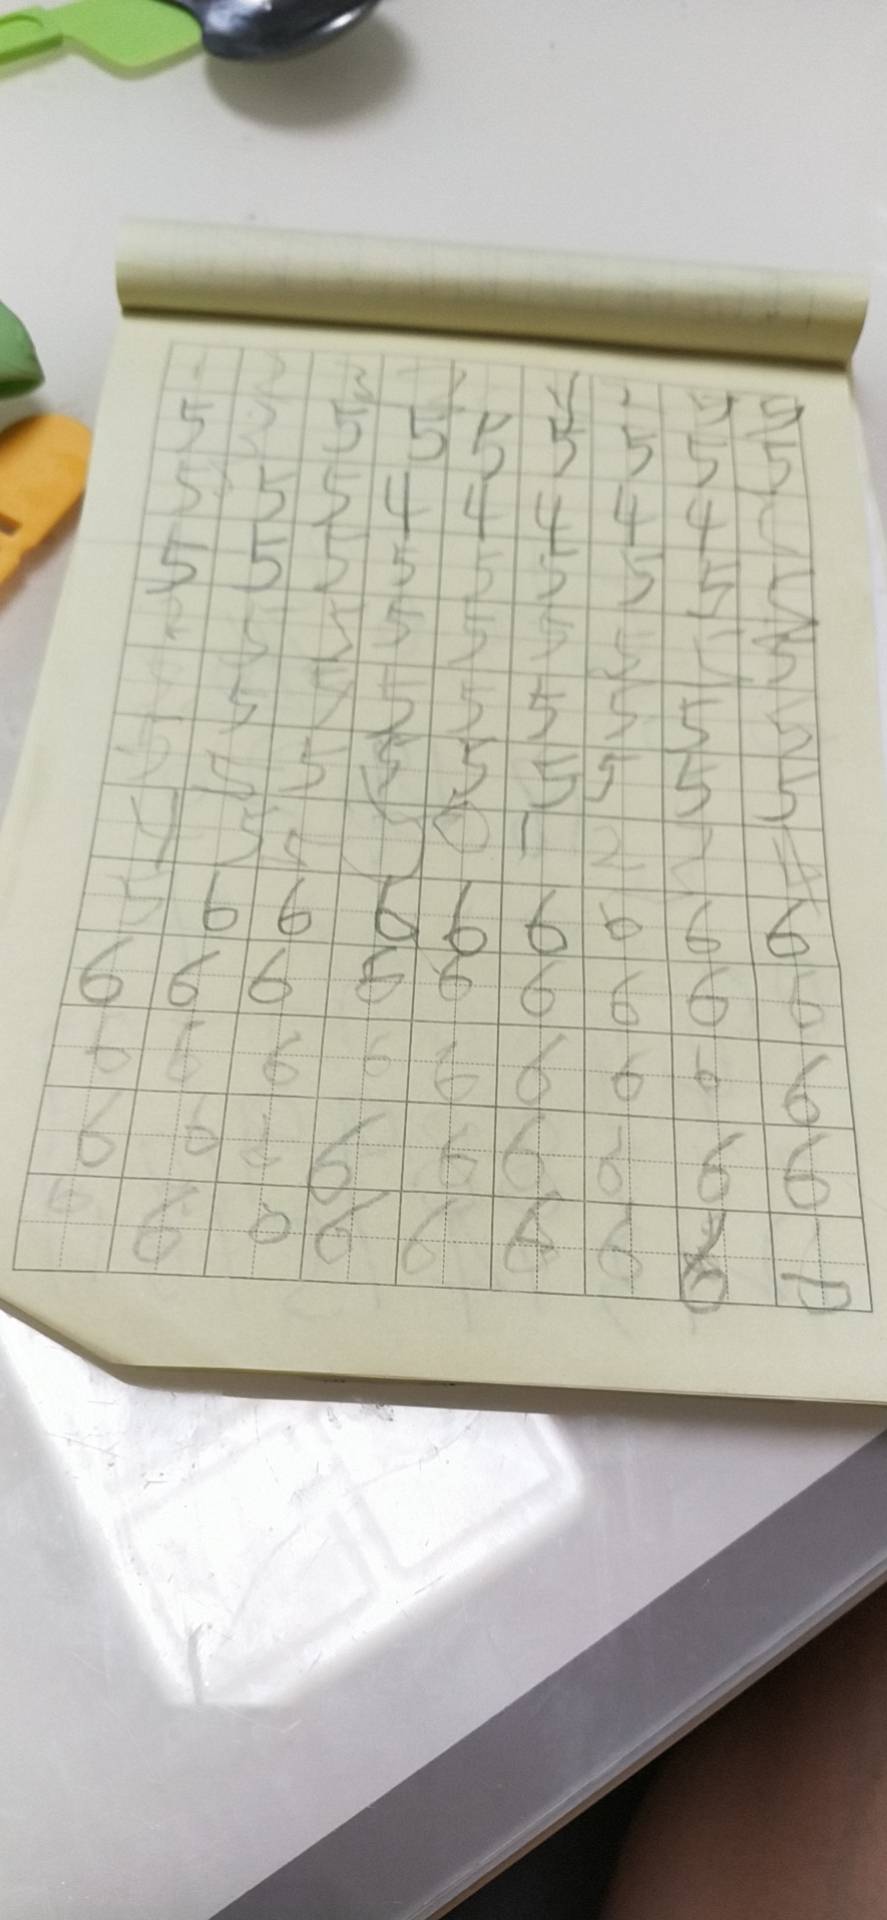 1 2 3
5 2 5 5 5 5 5 5 5
5 5 5 4 4 4 4 4
5 5 5 5 5 5 5 5 5
5 5 5 5 5 5 5 5
5 5 5 5 5 5 5 5
5 5 5 5 5 5 5 5 5
4 5 5 0 1 2 3 4
5 6 6 6 6 6 6 6 6
6 6 6 6 6 6 6 6 6
6 6 6 6 6 6 6 6 6
6 6 6 6 6 6 6 6 6
6 6 6 6 6 6 6